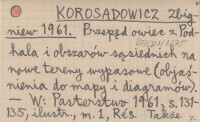 KOROSADOWICZ Zbig-
niew 1961. Przepęd owiec z Pod-
hala i obszarów sąsiednich na
nowe tereny wypasowe (objaś-
nienia do mapy i diagramów).
— W: Pasterstwo 1961, s. 131-
135, ilustr., m. 1, Rés. Także